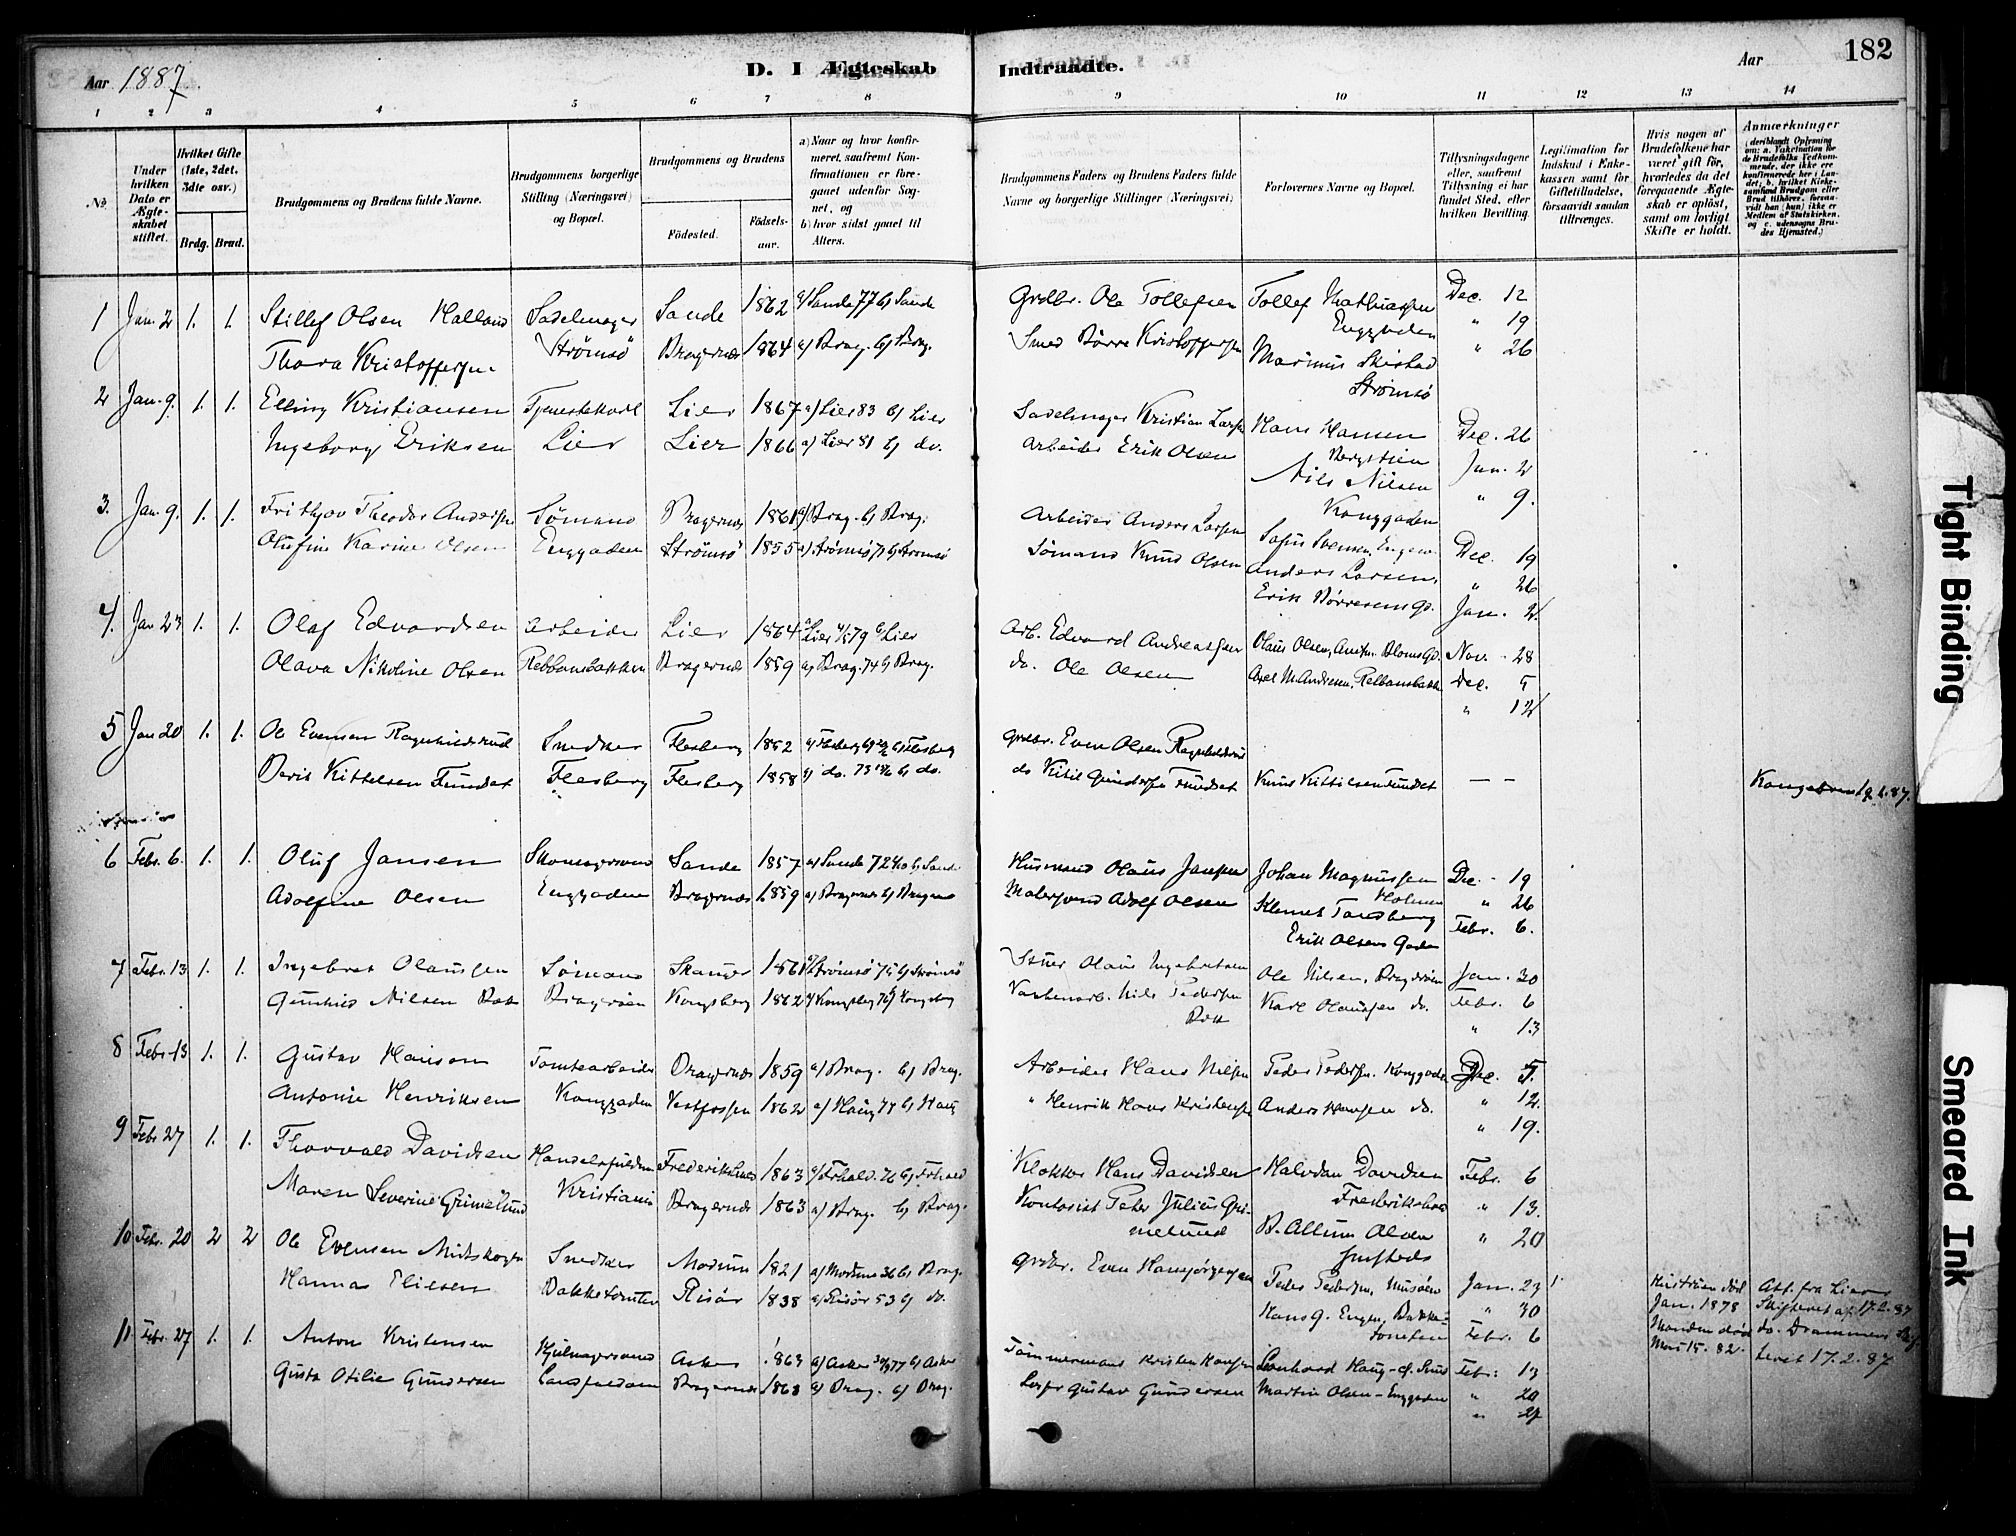 Aar 1887.
D. I Ægteskab
Indtraadte.
Aar
182
1 2 3 4 5 6 7 8 9 10 11 12 13 14
No.
Under hvilken Dato er Ægteskabet stiftet.
Hvilket Gifte (1ste, 2det, 3dte osv.)
Brdg. Brud.
Brudgommens og Brudens fulde Navne.
Brudgommens borgerlige Stilling (Næringsvei) og Bopæl.
Brudgommens og Brudens
Födested.
Födselsaar.
a) Naar og hvor konfirmeret, saafremt Konfirmationen er foregaaet udenfor Sognet, og
b) hvor sidst gaaet til Alters.
Brudgommens Faders og Brudens Faders fulde Navne og borgerlige Stillinger (Næringsvei)
Forlovernes Navne og Bopæl.
Tillysningsdagene eller, saafremt Tillysning ei har fundet Sted, efter hvilken Bevilling.
Legitimation for Indskud i Enkekassen samt for Giftetilladelse, forsaavidt saadan tiltrænges.
Hvis nogen af Brudefolkene har været gift för, hvorledes da det foregaaende Ægteskab er oplöst, samt om lovligt Skifte er holdt.
Anmærkninger
(deriblandt Oplysning om: a. Vakcination for de Brudefolks Vedkommende, der ikke ere konfirmerede her i Landet; b. hvilket Kirkesamfund Brudgom eller Brud tilhörer, forsaavidt han (hun) ikke er Medlem af Statskirken, og c. udensogns Brudes Hjemsted.)
1 Jan. 2 1. 1. Stillef Olsen Halland Sadelmager Sande 1862 a) Sande 77 b) Sande Grdbr. Ole Tollefsen Tollef Mathiassen Enggaden Dec. 12 " 19 " 26
Thora Kristoffersen Strømsö Bragernæs 1864 a) Brag. b) Brag. Smed Børre Kristoffersen Marinus Skistad Strømsö
2 Jan. 9. 1. 1. Elling Kristiansen Tjenestekarl Lier 1867 a) Lier 83 b) Lier Sadelmager Kristian Larsen Hans Hansen Bergstien Dec. 26
Ingeborg Eriksen Lier Lier 1866 a) Lier 81 b) do. Arbeider Erik Olsen Nils Nilsen Konggaden Jan. 2 " 9.
3. Jan. 9. 1. 1. Frithjov Theodor Andersen Sømand Bragernæs 1861 a) Brag. b) Brag. Arbeider Anders Larsen Sofus Svensen, Dec. 19
Olufine Karine Olsen Enggaden Strømsö 1855 a) Strømsö 71 b) Strømsö Sømand Knud Olsen Anders Larsen, Erik Børresens Gd. " 26 Jan. 2
4. Jan 23 1. 1. Olaf Edvardsen Arbeider Lier 1864 a) Lier 4/5 79 b) Lier Arb. Edvard Andreassen Olaus Olsen, Nov. 28
Olava Nikoline Olsen Rebbansbakken Bragernæs 1859 a) Brag. 74 b) Brag. do. Ole Olsen Axel M. Andresen, Rebbansbakken Dec. 5 " 12
5 Jan 20 1. 1. Ole Evensen Ragnhildsrud Snedker Flesberg 1852 b) Flesberg Grdbr. Even Olsen Ragnhildsrud
Berit Kittelsen Fundet Flesberg Flesberg 1858 a) do. 73 b) do. do Kitil Gundersen Fundet Knud Kittilsen Fundet — — Kongebrev 19.1.87.
6 Febr. 6. 1. 1. Oluf Jansen Skomagersvend Sande 1857 a) Sande 72 b) Sande Husmand Olaus Jansen Johan Magnussen Holmen Dec. 19
Adolfine Olsen Enggaden Bragernæs 1859 a) Bragernæs b) Bragernæs Malersvend Adolf Olsen Klemet Tandberg Erik Olsens Gade " 26 Febr. 6.
7 Febr. 13 1. 1. Ingebret Olaussen Sømand Skauger 1861 a) Strømsö 75 b) Strømsö Olaus Ingebretsen Ole Nilsen, Bragerøen Jan. 30
Gunhild Nilsen Bak Bragerøen Kongsberg 1862 a) Kongsberg 76 b) Kongsberg Nils Pedersen Bak Karl Olaussen do. Febr. 6 " 13
8 Febr. 13 1. 1. Gustav Hansen Tomtearbeider Bragernæs 1859 a) Brag. b) Brag. Arbeider Hans Nilsen Peder Pedersen. Konggaden Dec. 5.
Antonie Henriksen Konggaden Vestfossen 1862 a) Haug 77 b) Haug " Henrik Hans Kristensen Anders Hansen do. " 12. " 19.
9 Febr 27 1. 1. Thorvald Davidsen Handelsfuldm. Frederikshald 1863 a) Frhald. 76 b) Frhald Klokker Hans Davidsen Halvdan Davidsen Frederikshald Febr. 6
Maren Severine Grimelund Kristiania Bragernæs 1863 a) Brag. b) Brag. Kontorist Peter Julius Grimelund B. Allum Olsen " 13. " 20
10 Febr. 20 2 2 Ole Evensen Midtskogen Snedker Modum 1821 a) Modum 36 b) Brag. Grdbr. Even Hansjørgensen Peder Pedersen, Jan. 23 Hustruen död Jan. 1878 Att. fra Liers Skifteret af 17.2.87
Hanna Eliesen Bakketomten Risör 1838 a) Risör 53 b) do. Hans G. Engen, Bakketomten " 30 Febr. 6 Manden död Mars 15. 82. do. Drammens Skifteret 17.2.87
11. Febr. 27 1. 1. Anton Kristensen Hjulmagersvend Asker 1863 a) Asker 77 b) Asker Tømmermand Kristen Hansen Leonhard Haug Febr. 13
Gusta Otilie Gundersen Bragernæs 1863 a) Brag. b) Brag. Gustav Gundersen Martin Olsen - Enggaden " 20 " 27
Tight Binding
Smeared Ink